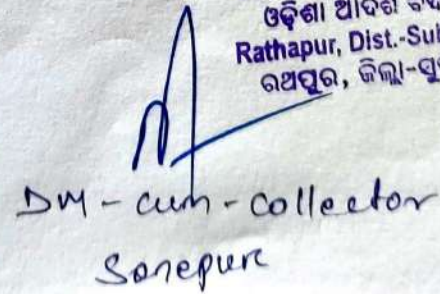 ଓଡ଼ିଶା ଆଦର୍ଶ
Rathapur, Dist.-Su
ରଥପୁର, ଜିଲ୍ଲା-ସୁ
DM - cum - Collector
Sonepure